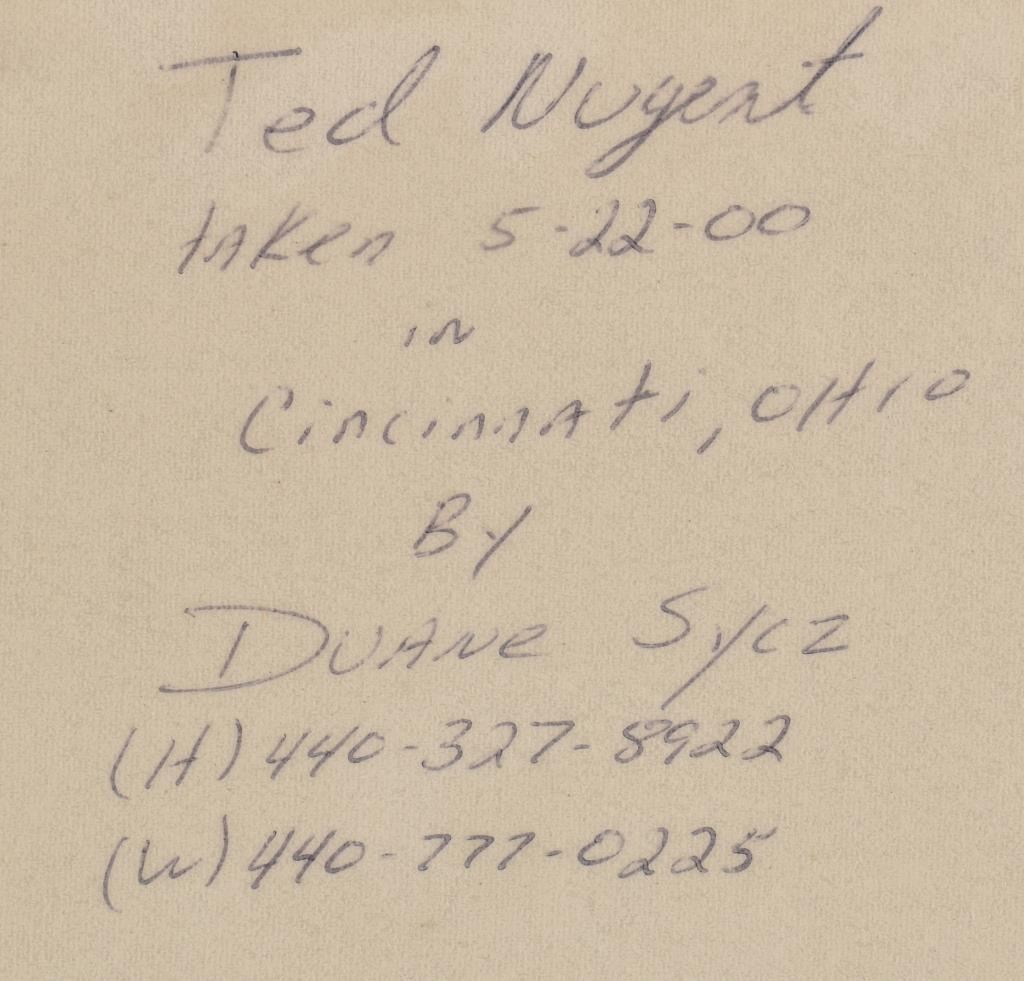 Ted Nugent
taken 5-22-00
in
Cincinnati, OHIO
By
DUANE Sycz
(H) 440-327-8922
(W) 440-777-0225